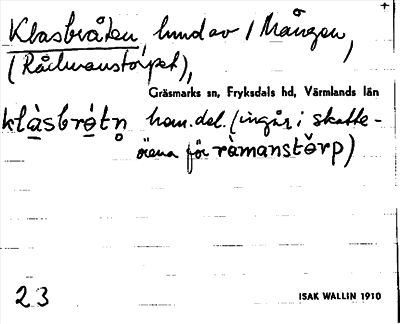 +
Klasbråten, lund av / Mången,
(Rådmanstorpet),
Gräsmarks sn, Fryksdals hd, Värmlands län
klàsbrótn̥ hem.del. (ingår i skatte-
örena för ràmanstǒrp)
23
ISAK WALLIN 1910